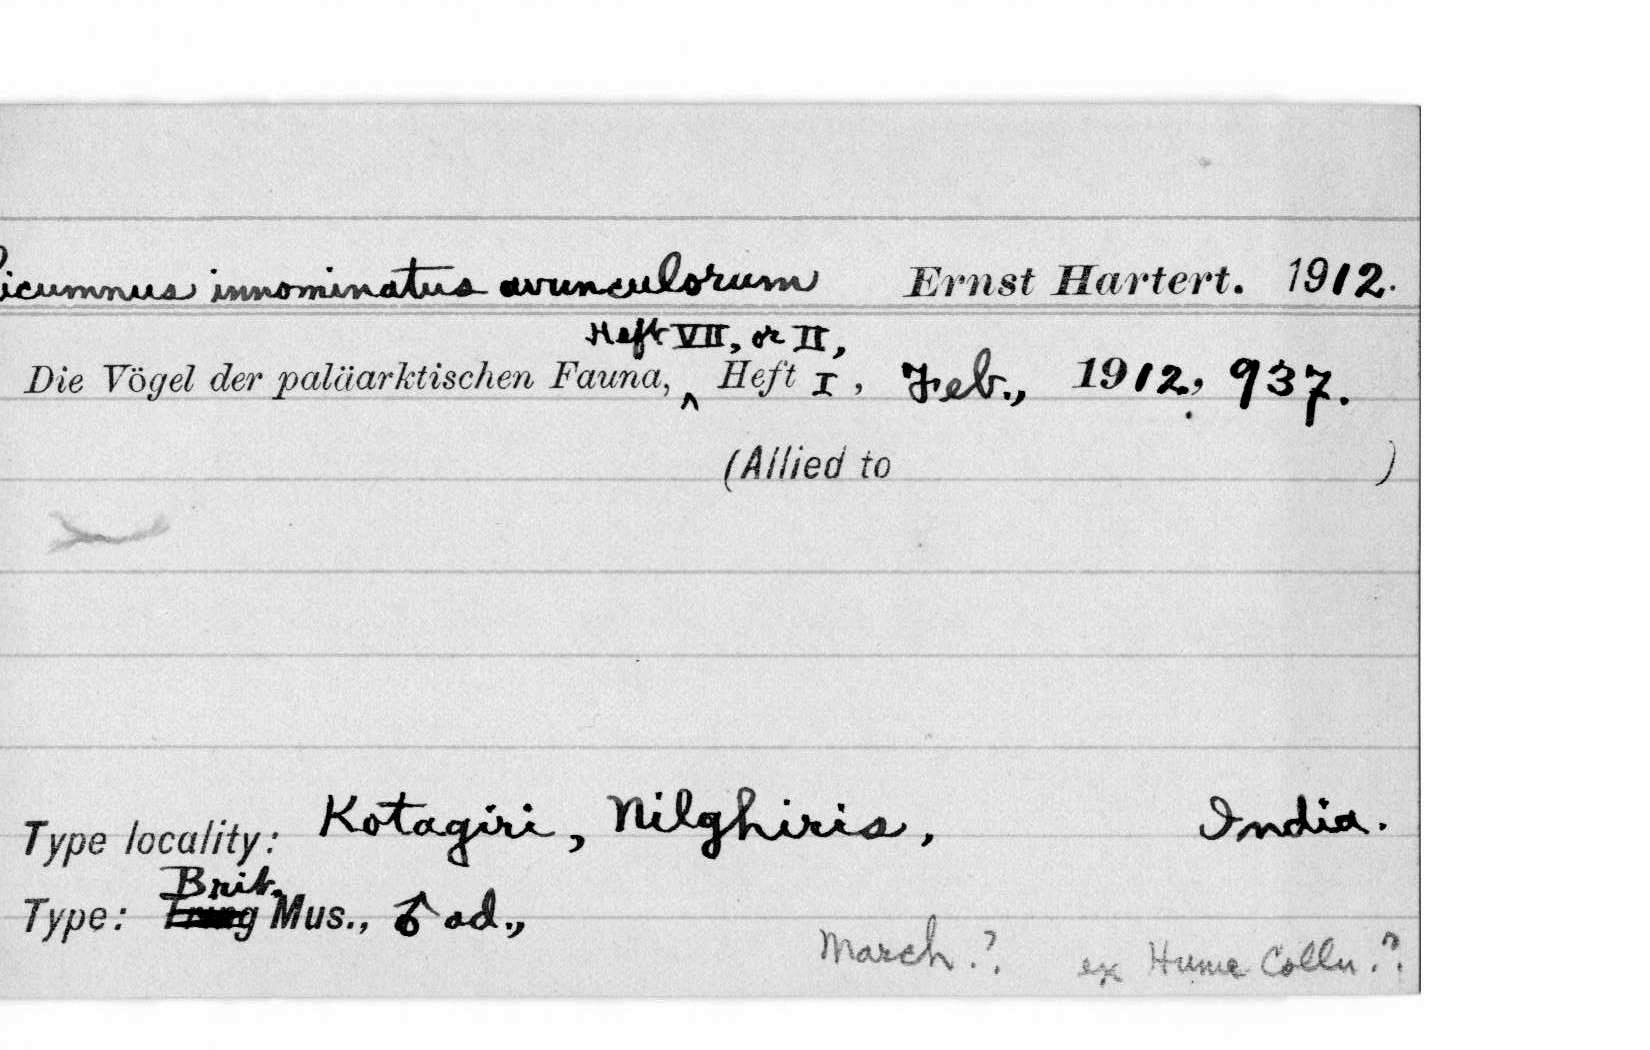 Picumnus innominatus avunculorum Ernst Hartert. 1912.
Heft VII, or II,
Die Vögel der paläarktischen Fauna, ^ Heft I, Feb., 1912, 937.
(Allied to )
Type locality: Kotagiri, Nilghiris, India.
Brit.
Type: Tring Mus., ♂ ad.,
March ?. ex Hume Colln. ?.